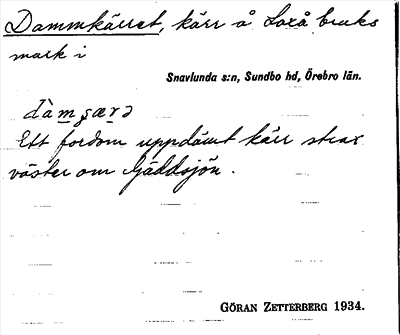 Dammkärret, kärr å Loxå bruks
mark i
Snavlunda s:n, Sundbo hd, Örebro län.
dàm̥ȿæ̥rə
Ett fordom uppdämt kärr strax
väster om Gäddsjön.
GÖRAN ZETTERBERG 1934.